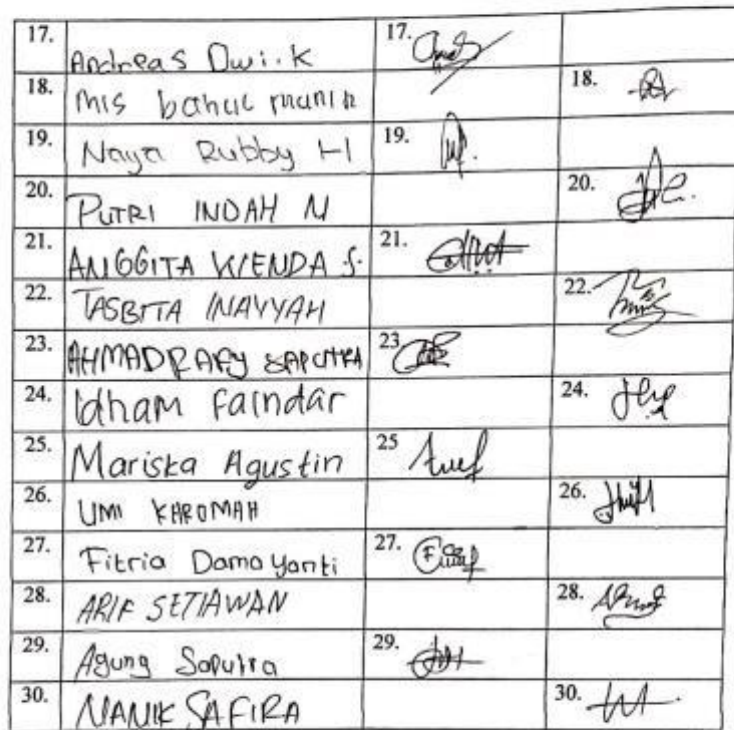 17. Andreas Dwi.k 17.
18. Mis bahul munir 18.
19. Naya Rubby H 19.
20. PUTRI INDAH N 20.
21. ANGGITA WENDA S. 21.
22. TASBITA INAYYAH 22.
23. AHMAD RAFY SAPUTRA 23
24. Idham Faindar 24.
25. Mariska Agustin 25
26. UMI KAROMAH 26.
27. Fitria Damayanti 27.
28. ARIF SETIAWAN 28.
29. Agung Saputra 29.
30. NANIK SAFIRA 30.